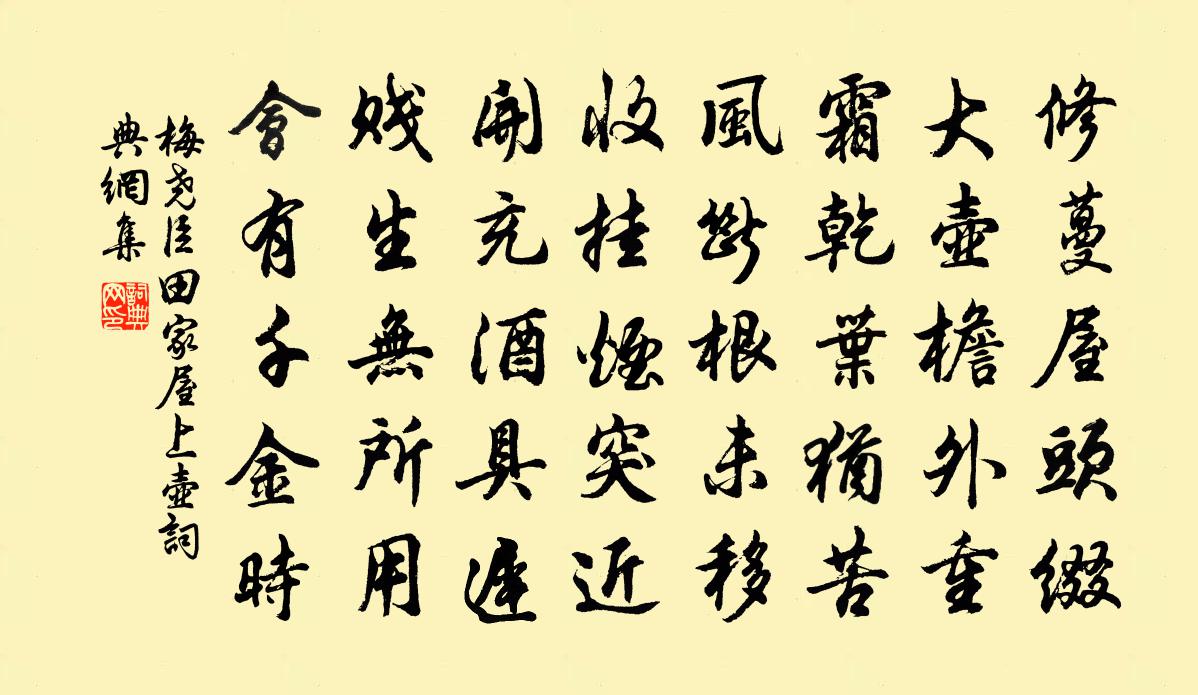 修蔓屋頭綴
大壺檐外垂
霜乾葉猶苦
風斷根未移
收挂煙突近
開充酒具遲
賤生無所用
會有千金時
梅堯臣田家屋上壺詞
典網集
詞典網印